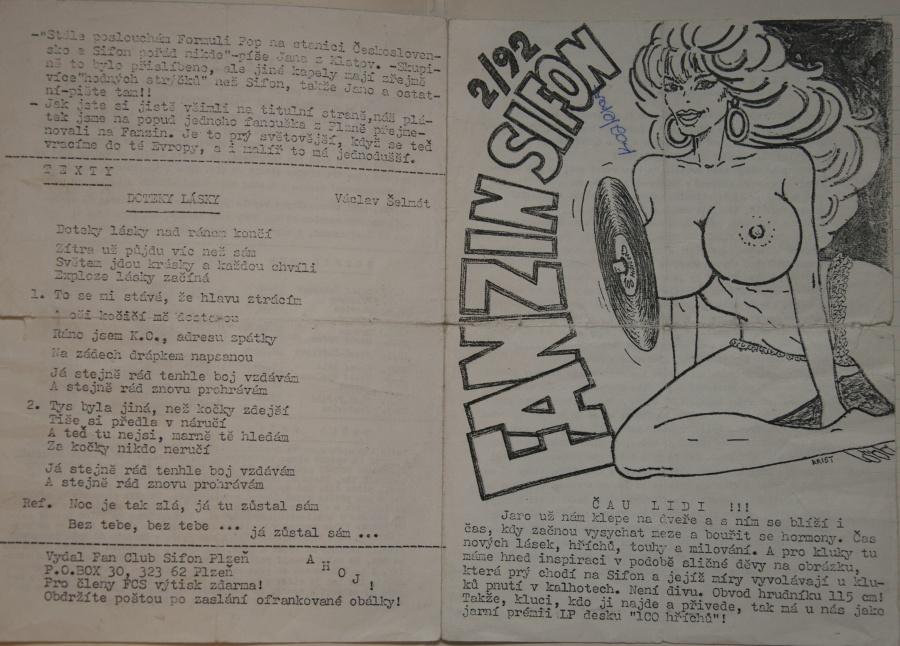 -"Stále poslouchám Formuli Pop na stanici Českosloven-
sko a Sifon pořád nikde"-píše Jana z Klatov. -Skupi-
ně to bylo přislíbeno, ale jiné kapely mají zřejmě
více"hodných strýčků" než Sifon, takže Jano a ostat-
ní-pište tam!!
- Jak jste si jistě všimli na titulní straně,náš plá-
tek jsme na popud jednoho fanouška z Plzně přejme-
novali na Fanzin. Je to prý světovější, když se teď
vracíme do té Evropy, a i malíř to má jednodušší.
T E X T Y
DOTEKY LÁSKY Václav Šelmát
Doteky lásky nad ránem končí
Zítra už půjdu víc než sám
Světem jdou krásky a každou chvíli
Exploze lásky začíná
1. To se mi stává, že hlavu ztrácím
A oči kočičí mě dostanou
Ráno jsem K.O., adresu zpátky
Na zádech drápkem napsanou
Já stejně rád tenhle boj vzdávám
A stejně rád znovu prohrávám
2. Tys byla jiná, než kočky zdejší
Tiše si předla v náručí
A teď tu nejsi, marně tě hledám
Za kočky nikdo neručí
Já stejně rád tenhle boj vzdávám
A stejně rád znovu prohrávám
Ref. Noc je tak zlá, já tu zůstal sám
Bez tebe, bez tebe ... já zůstal sám ...
Vydal Fan Club Sifon Plzeň
P.O.BOX 30, 323 62 Plzeň
Pro členy FCS výtisk zdarma!
Obdržíte poštou po zaslání ofrankované obálky!
A H O J !
2/92
FANZIN SIFON
ARIST
ČAU LIDI !!!
Jaro už nám klepe na dveře a s ním se blíží i
čas, kdy začnou vysychat meze a bouřit se hormony. Čas
nových lásek, hříchů, touhy a milování. A pro kluky tu
máme hned inspiraci v podobě sličné děvy na obrázku,
která prý chodí na Sifon a jejíž míry vyvolávají u klu-
ků pnutí v kalhotech. Není divu. Obvod hrudníku 115 cm!
Takže, kluci, kdo ji najde a přivede, tak má u nás jako
jarní prémii LP desku "100 hříchů"!